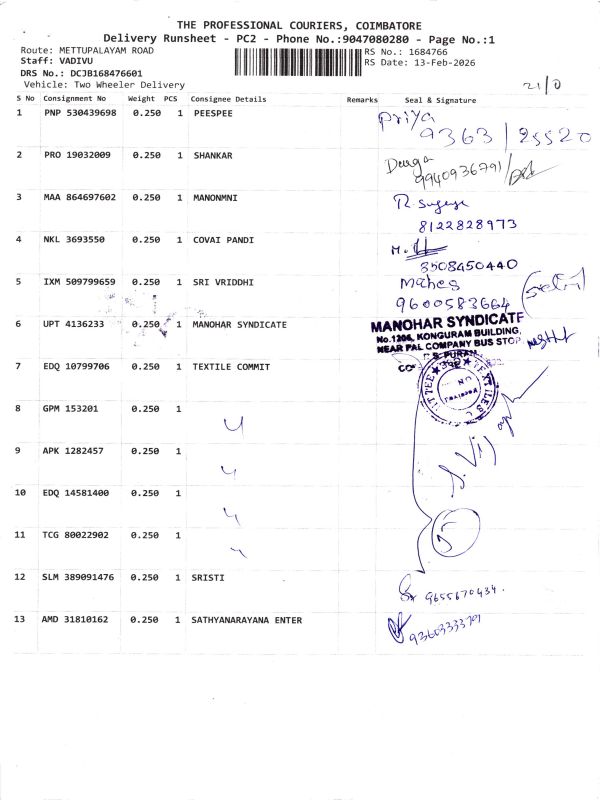 THE PROFESSIONAL COURIERS, COIMBATORE
Delivery Runsheet - PC2 - Phone No.:9047080280 - Page No.:1
Route: METTUPALAYAM ROAD
RS No.: 1684766
Staff: VADIVU
RS Date: 13-Feb-2026
DRS No.: DCJB168476601
Vehicle: Two Wheeler Delivery
21/0
S No Consignment No Weight PCS Consignee Details Remarks Seal & Signature
1 PNP 530439698 0.250 1 PEESPEE Priya
9363 / 25520
2 PRO 19032009 0.250 1 SHANKAR Durga
9940936791/
3 MAA 864697602 0.250 1 MANONMNI
8122828973
4 NKL 3693550 0.250 1 COVAI PANDI
3508450440
5 IXM 509799659 0.250 1 SRI VRIDDHI Mahes
9600583664
6 UPT 4136233 0.250 1 MANOHAR SYNDICATE MANOHAR SYNDICATE
No.1206, KONGURAM BUILDING,
NEAR PAL COMPANY BUS STOP
7 EDQ 10799706 0.250 1 TEXTILE COMMIT
8 GPM 153201 0.250 1
9 APK 1282457 0.250 1
10 EDQ 14581400 0.250 1
11 TCG 80022902 0.250 1 5
12 SLM 389091476 0.250 1 SRISTI 9655670434.
13 AMD 31810162 0.250 1 SATHYANARAYANA ENTER